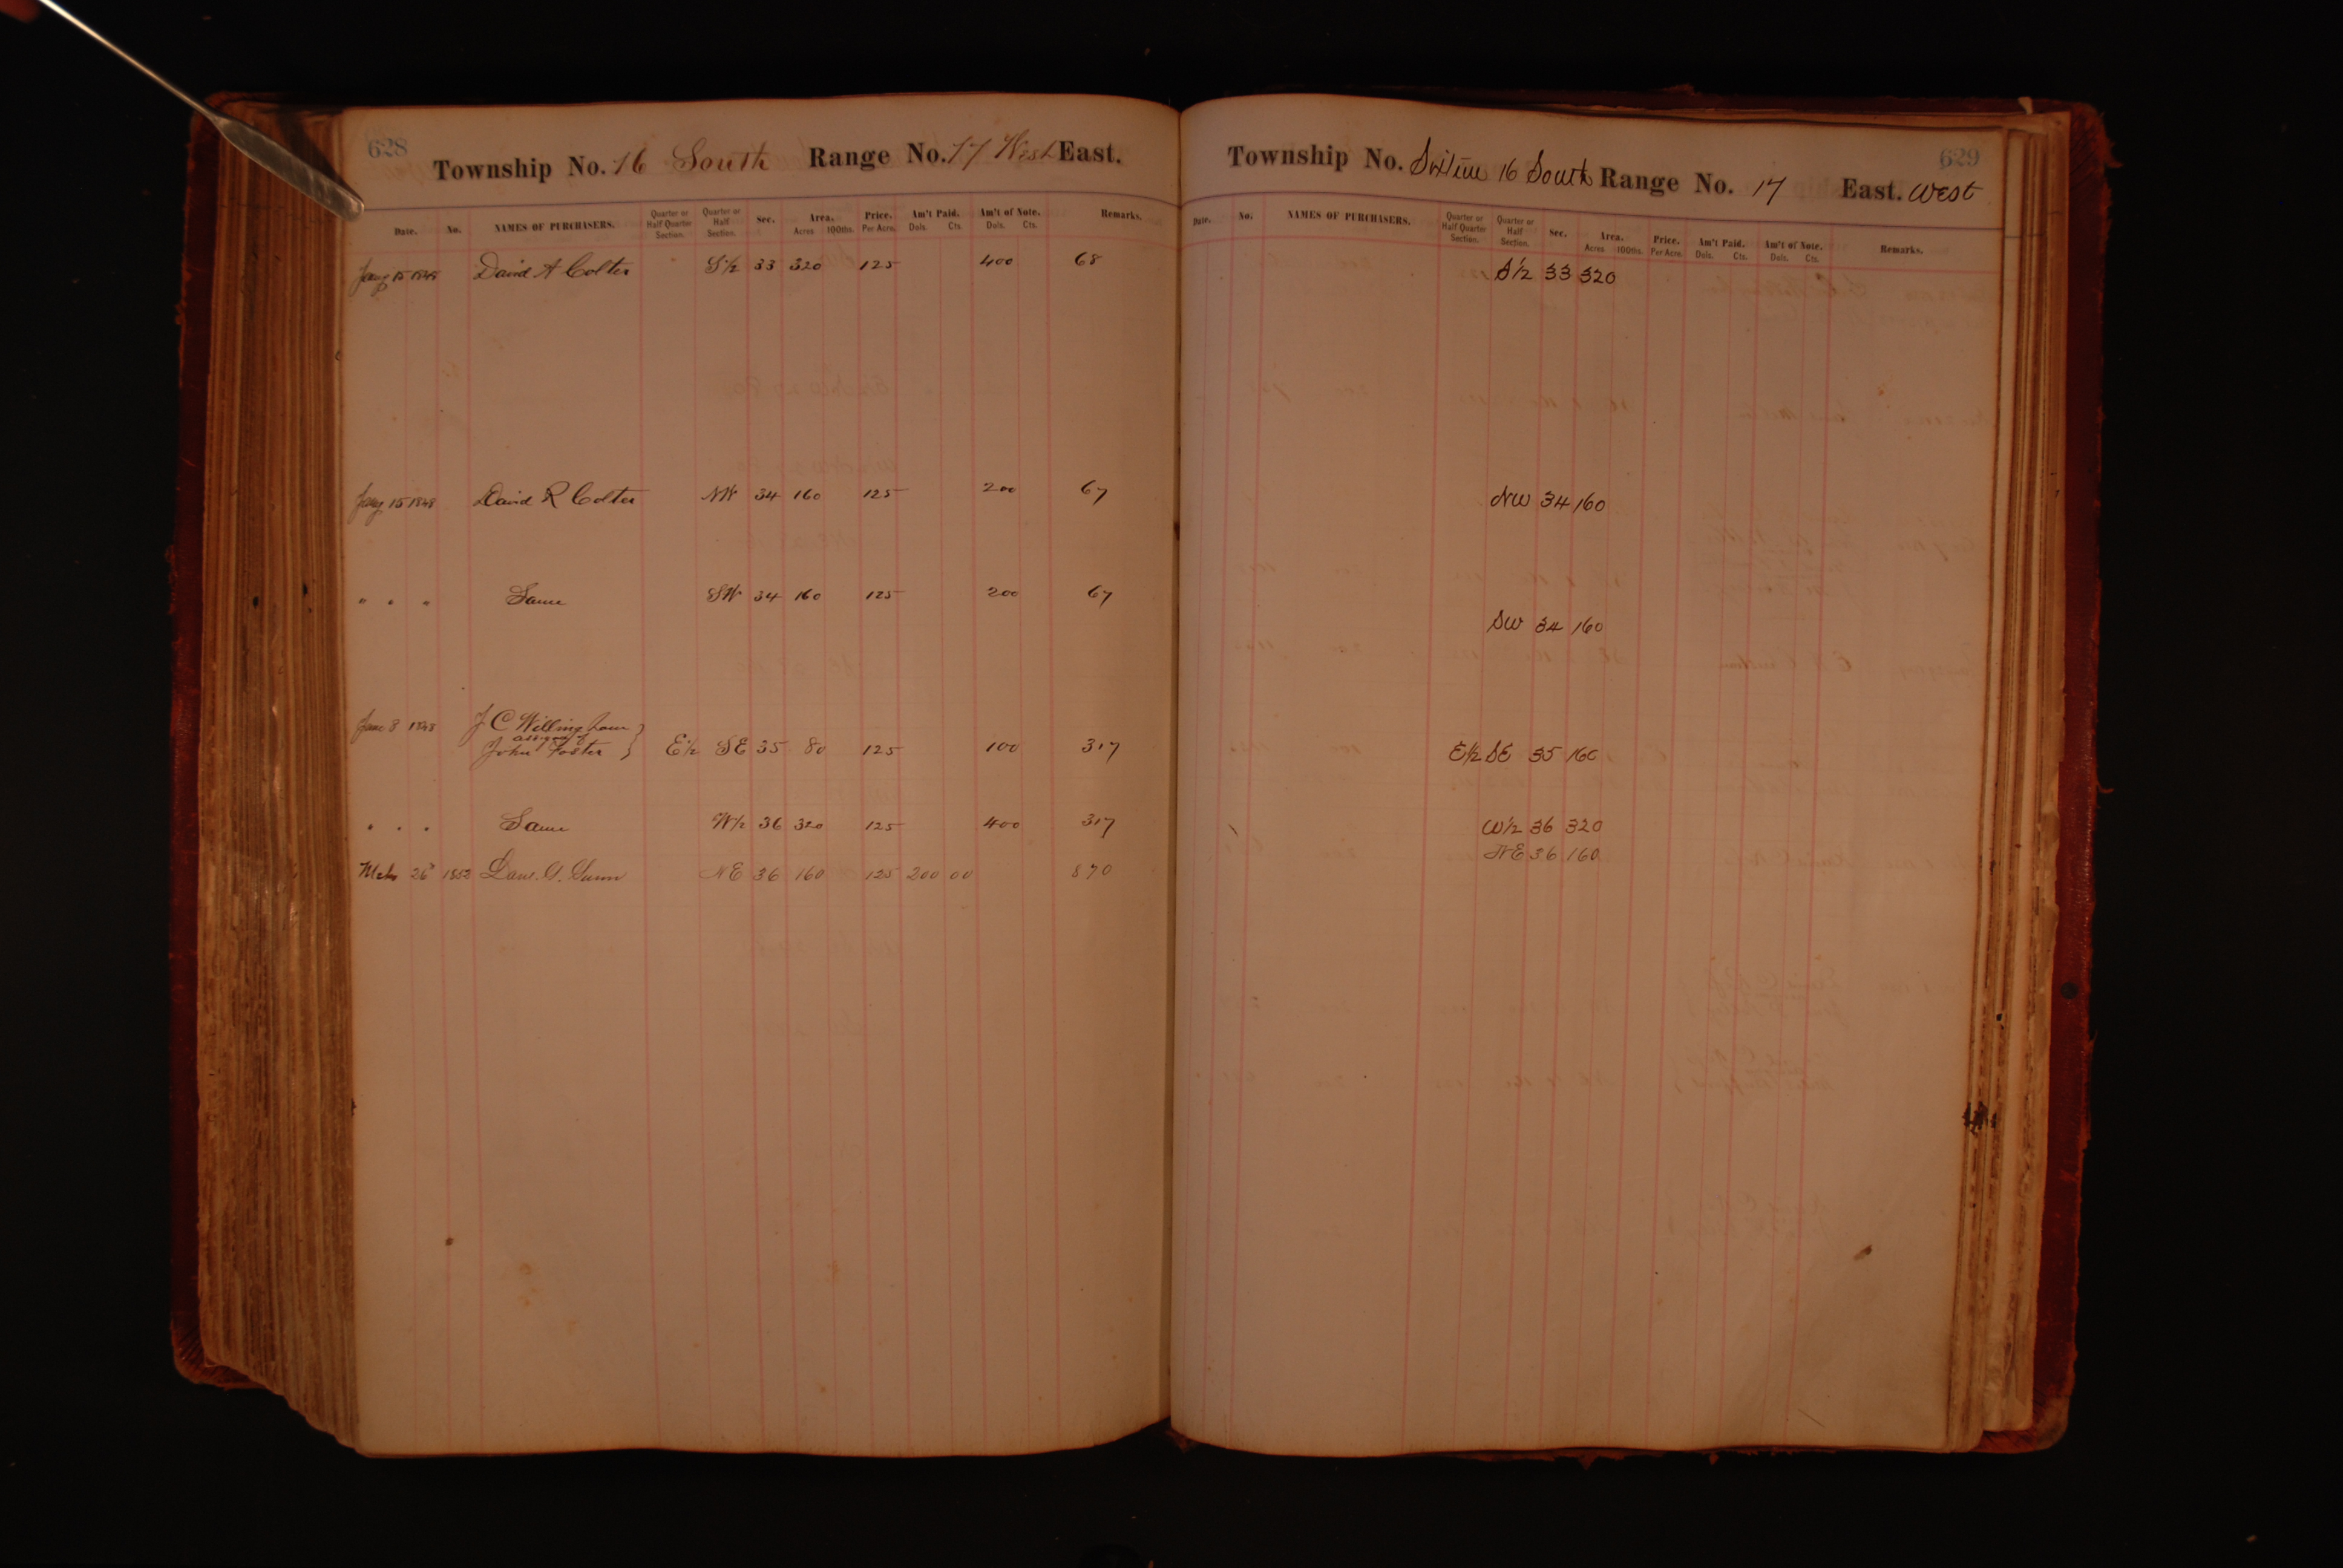 628
Township No. 16 South Range No. 17 West East.
Date. No. NAMES OF PURCHASERS. Quarter or Half Quarter Section. Quarter or Half Section. Sec. Area. Acres 100ths. Price. Per Acre. Am't Paid. Dols. Cts. Am't of Note. Dols. Cts. Remarks.
Jany 15 1848 David A Colter S 1/2 33 320 125 400 68
Jany 15 1848 David R Colter NW 34 160 125 200 67
" " " Same SW 34 160 125 200 67
June 8 1848 J C Willingham
assignee of
John Foster E 1/2 SE 35 80 125 100 317
" " " Same W 1/2 36 320 125 400 317
Mch 26 1852 NE 36 160 125 200 00 870
629
Township No. 16 South Range No. 17 East. West
Date. No. NAMES OF PURCHASERS. Quarter or Half Quarter Section. Quarter or Half Section. Sec. Area. Acres 100ths. Price. Per Acre. Am't Paid. Dols. Cts. Am't of Note. Dols. Cts. Remarks.
S 1/2 33 320
NW 34 160
SW 34 160
E 1/2 SE 35 160
W 1/2 36 320
NE 36 160